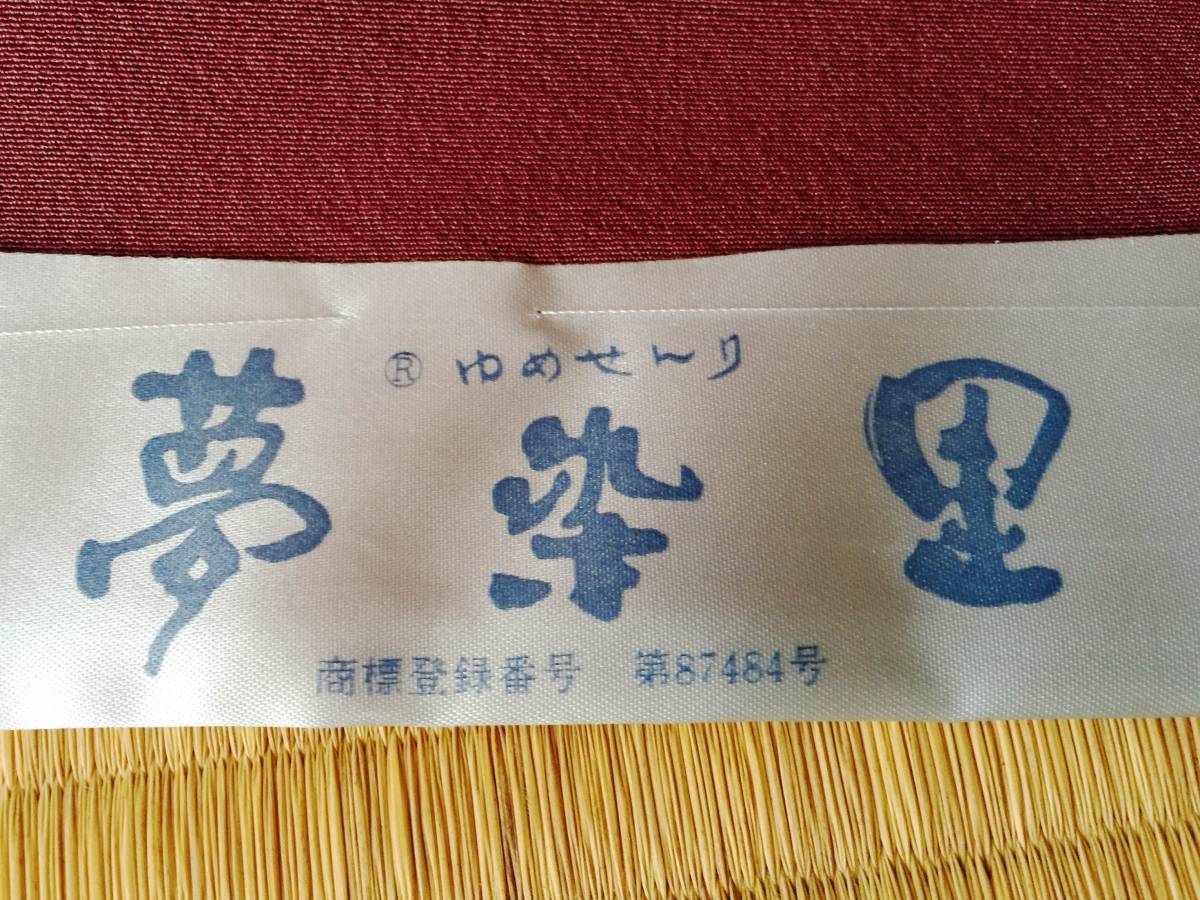 ® ゆめせんり
夢染里
商標登録番号 第87484号